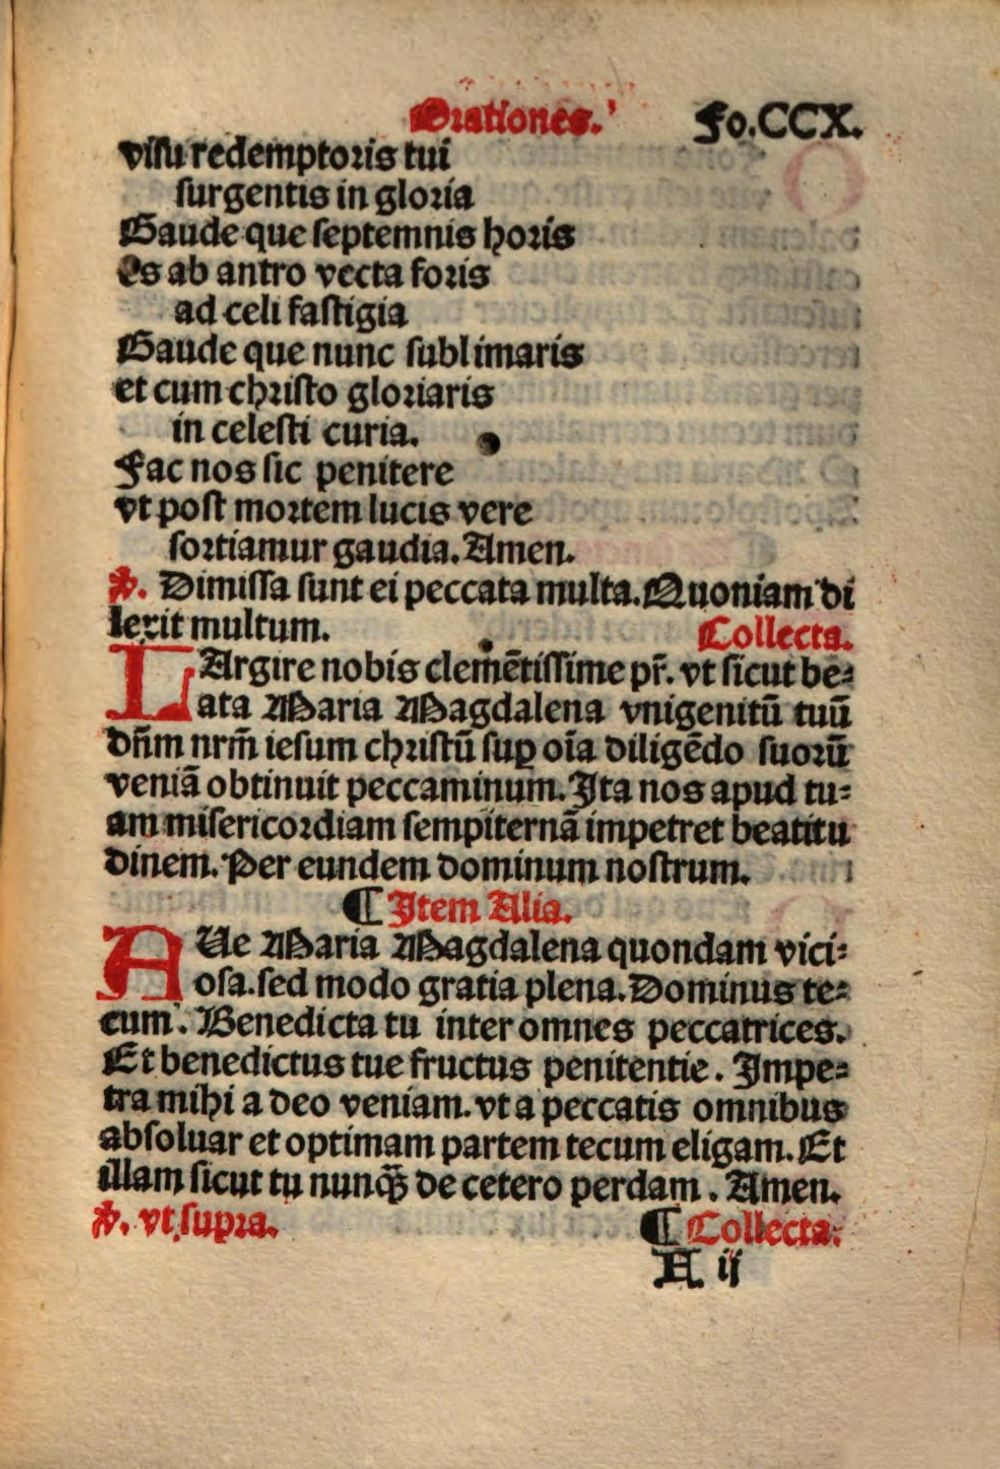 Orationes. Fo.CCX.
visu redemptoris tui
surgentis in gloria
Gaude que septemnis horis
Es ab antro vecta foris
ad celi fastigia
Gaude que nunc sublimaris
et cum christo gloriaris
in celesti curia.
Fac nos sic penitere
vt post mortem lucis vere
sortiamur gaudia. Amen.
℣. Dimissa sunt ei peccata multa. Quoniam di
lexit multum. Collecta.
LArgire nobis clemētissime pr̄. vt sicut be⸗
ata Maria Magdalena vnigenitū tuū
dn̄m nrm̄ iesum christū suꝑ oīa diligēdo suorū
veniā obtinuit peccaminum. Ita nos apud tu⸗
am misericordiam sempiternā impetret beatitu
dinem. Per eundem dominum nostrum.
¶ Item Alia.
AUe Maria Magdalena quondam vici⸗
osa. sed modo gratia plena. Dominus te⸗
cum. Benedicta tu inter omnes peccatrices.
Et benedictus tue fructus penitentie. Impe⸗
tra mihi a deo veniam. vt a peccatis omnibus
absoluar et optimam partem tecum eligam. Et
illam sicut tu nunqꝫ̄ de cetero perdam. Amen.
℣. vt supra. ¶ Collecta.
A ij